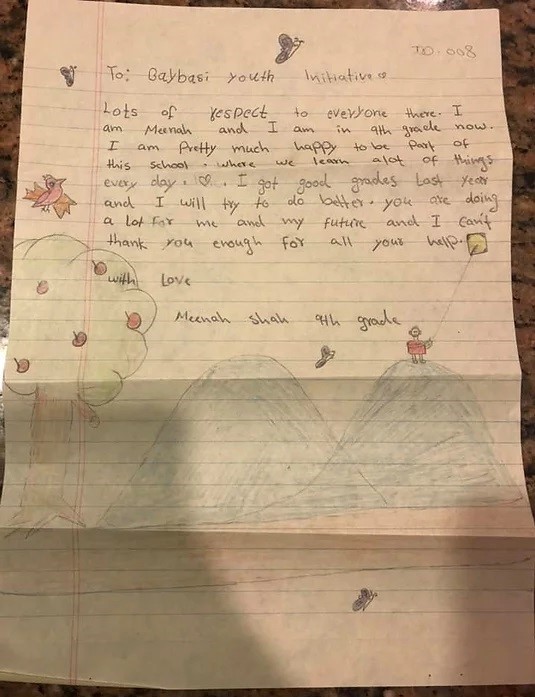 ID. 008
To: Baybasi youth Initiative
Lots of respect to everyone there. I
am Meenah and I am in 9th grade now.
I am pretty much happy to be part of
this school. where we learn alot of things
every day. ♡. I got good grades last year
and I will try to do better. you are doing
a lot for me and my future and I can't
thank you enough for all your help.
with Love
Meenah Shah 9th grade